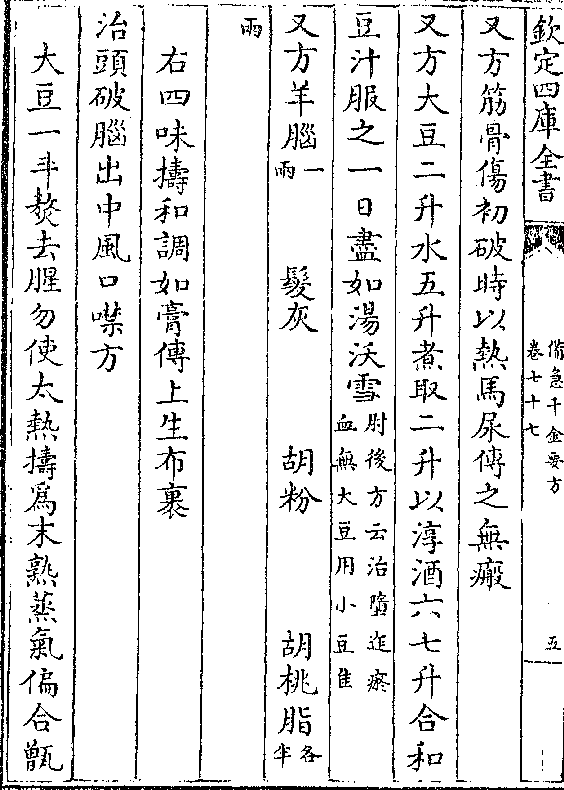 欽定四庫全書
備急千金要方
卷七十七
五
又方筋骨傷初破時以熱馬尿傅之無瘢
又方大豆二升水五升煮取二升以淳酒六七升合和
豆汁服之一日盡如湯沃雪肘後方云治墮迮瘀
血無大豆用小豆佳
又方羊腦一兩 髮灰 胡粉 胡桃脂各半
兩
右四味擣和調如膏傅上生布裹
治頭破腦出中風口噤方
大豆一斗熬去腥勿使太熱擣爲末熟蒸氣徧合甑